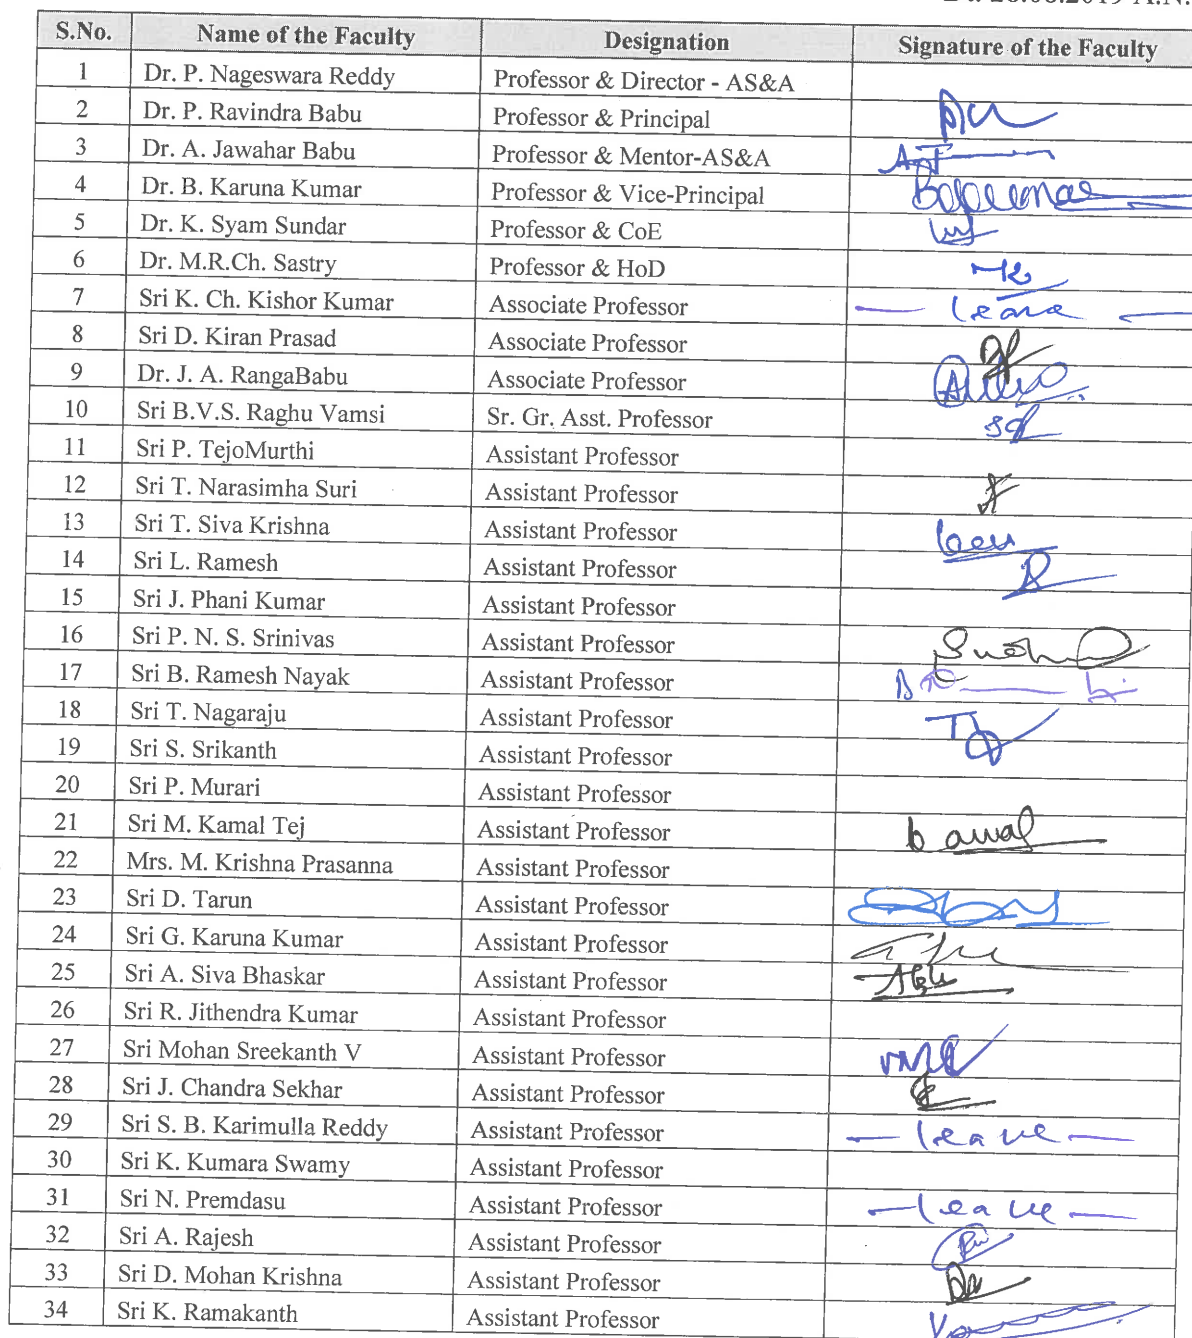 28.08.2019 A.N.
S.No. Name of the Faculty Designation Signature of the Faculty
1 Dr. P. Nageswara Reddy Professor & Director - AS&A
2 Dr. P. Ravindra Babu Professor & Principal
3 Dr. A. Jawahar Babu Professor & Mentor-AS&A
4 Dr. B. Karuna Kumar Professor & Vice-Principal
5 Dr. K. Syam Sundar Professor & CoE
6 Dr. M.R.Ch. Sastry Professor & HoD
7 Sri K. Ch. Kishor Kumar Associate Professor - leave -
8 Sri D. Kiran Prasad Associate Professor
9 Dr. J. A. RangaBabu Associate Professor
10 Sri B.V.S. Raghu Vamsi Sr. Gr. Asst. Professor
11 Sri P. TejoMurthi Assistant Professor
12 Sri T. Narasimha Suri Assistant Professor
13 Sri T. Siva Krishna Assistant Professor
14 Sri L. Ramesh Assistant Professor
15 Sri J. Phani Kumar Assistant Professor
16 Sri P. N. S. Srinivas Assistant Professor
17 Sri B. Ramesh Nayak Assistant Professor
18 Sri T. Nagaraju Assistant Professor
19 Sri S. Srikanth Assistant Professor
20 Sri P. Murari Assistant Professor
21 Sri M. Kamal Tej Assistant Professor
22 Mrs. M. Krishna Prasanna Assistant Professor
23 Sri D. Tarun Assistant Professor
24 Sri G. Karuna Kumar Assistant Professor
25 Sri A. Siva Bhaskar Assistant Professor
26 Sri R. Jithendra Kumar Assistant Professor
27 Sri Mohan Sreekanth V Assistant Professor
28 Sri J. Chandra Sekhar Assistant Professor
29 Sri S. B. Karimulla Reddy Assistant Professor - leave -
30 Sri K. Kumara Swamy Assistant Professor
31 Sri N. Premdasu Assistant Professor - leave -
32 Sri A. Rajesh Assistant Professor
33 Sri D. Mohan Krishna Assistant Professor
34 Sri K. Ramakanth Assistant Professor